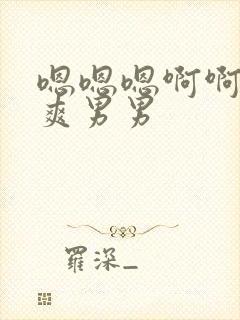 嗯嗯嗯啊啊
爽男男
羅深_